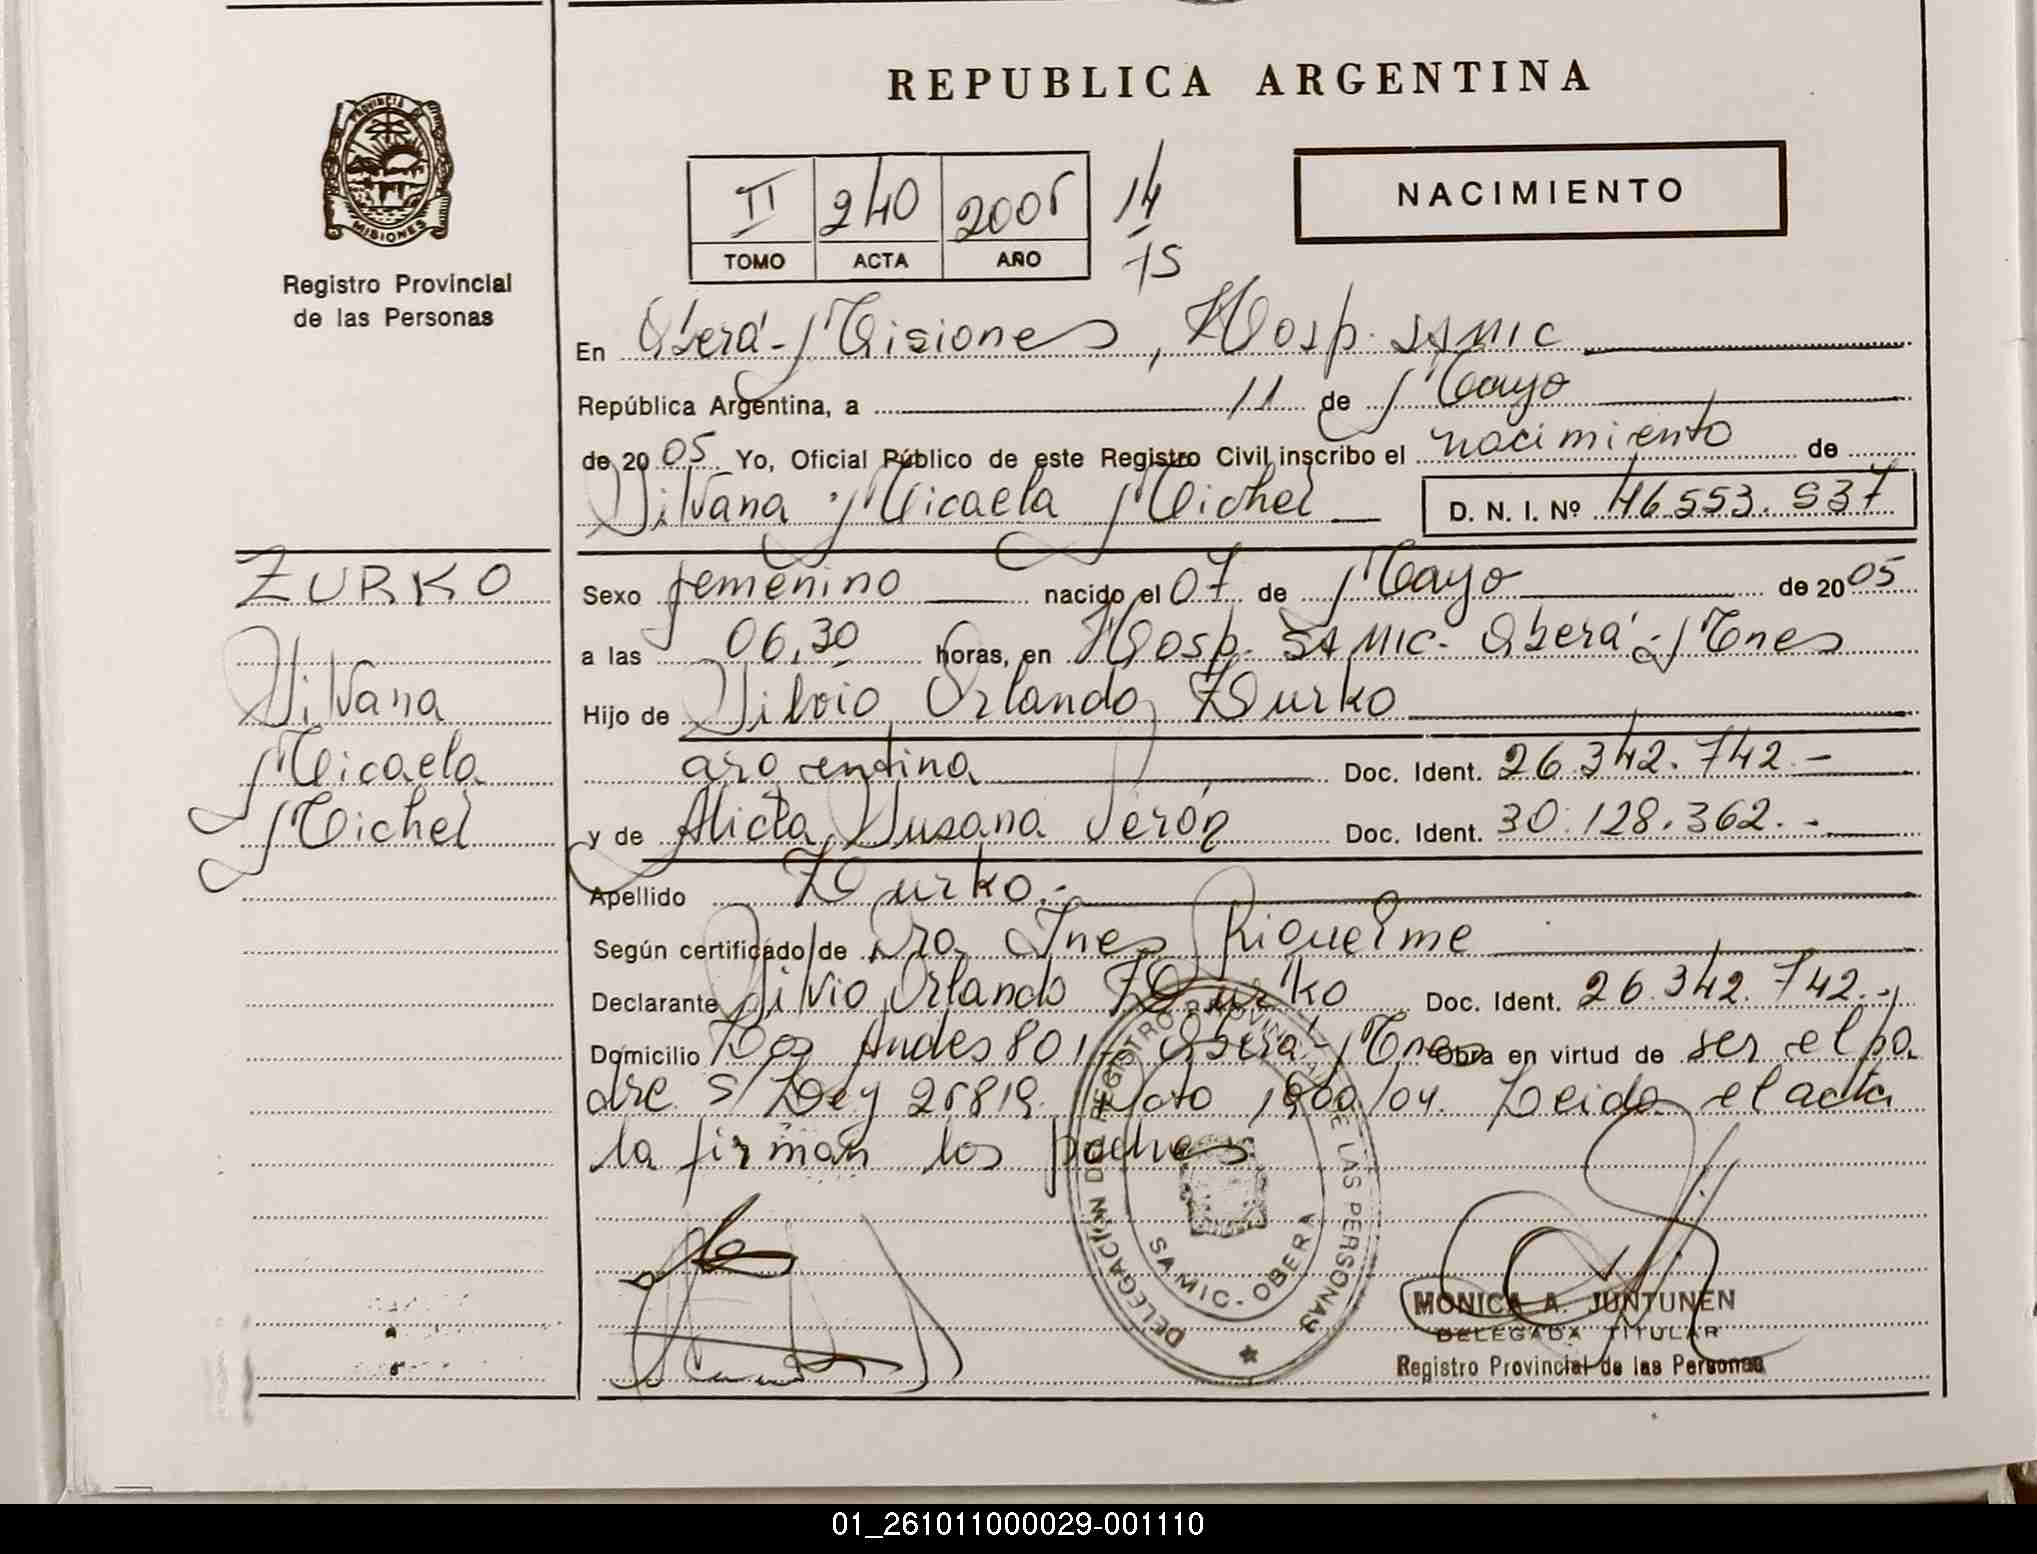 REPUBLICA ARGENTINA
PROVINCIA
MISIONES
Registro Provincial
de las Personas
II 240 2005 14
TOMO ACTA AÑO 15
NACIMIENTO
En Oberá - Misiones, Hosp. SAMIC
República Argentina, a 11 de Mayo
de 2005 Yo, Oficial Público de este Registro Civil inscribo el nacimiento de
Silvana Micaela Michel D. N. I. Nº 46.553.537
ZURKO
Silvana
Micaela
Michel
Sexo femenino nacido el 07 de Mayo de 2005
a las 06,30 horas, en Hosp. SAMIC - Oberá - Mnes
Hijo de Silvio Orlando Zurko
argentina Doc. Ident. 26.342.742.-
y de Alicia Susana Verón Doc. Ident. 30.128.362.-
Apellido Zurko.-
Según certificado de Dra Ines Riquelme
Declarante Silvio Orlando Zurko Doc. Ident. 26.342.742.-
Domicilio Los Andes 801 - Oberá - Mnes Obra en virtud de ser el pa
dre s/ Ley 26819 1900/04. Leida el acta
la firman los padres
DELEGACIÓN DE REGISTRO PROVINCIAL DE LAS PERSONAS
SAMIC - OBERA
MONICA A. JUNTUNEN
DELEGADA TITULAR
Registro Provincial de las Personas
01_261011000029-001110